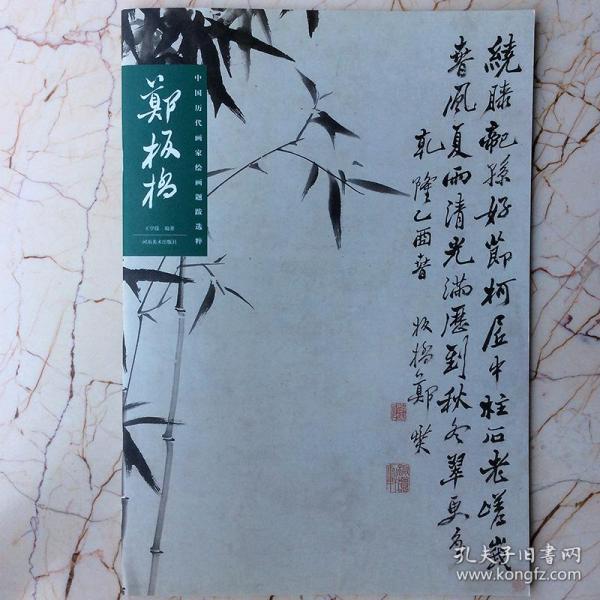 繞膝龍孫好節柯居中柱石老嵯峨
春風夏雨清光滿歷到秋冬翠更多
乾隆乙酉春 板橋鄭燮
中国历代画家绘画题跋选粹
鄭板橋
编著
河南美术出版社
孔夫子旧书网
www.kongfz.com